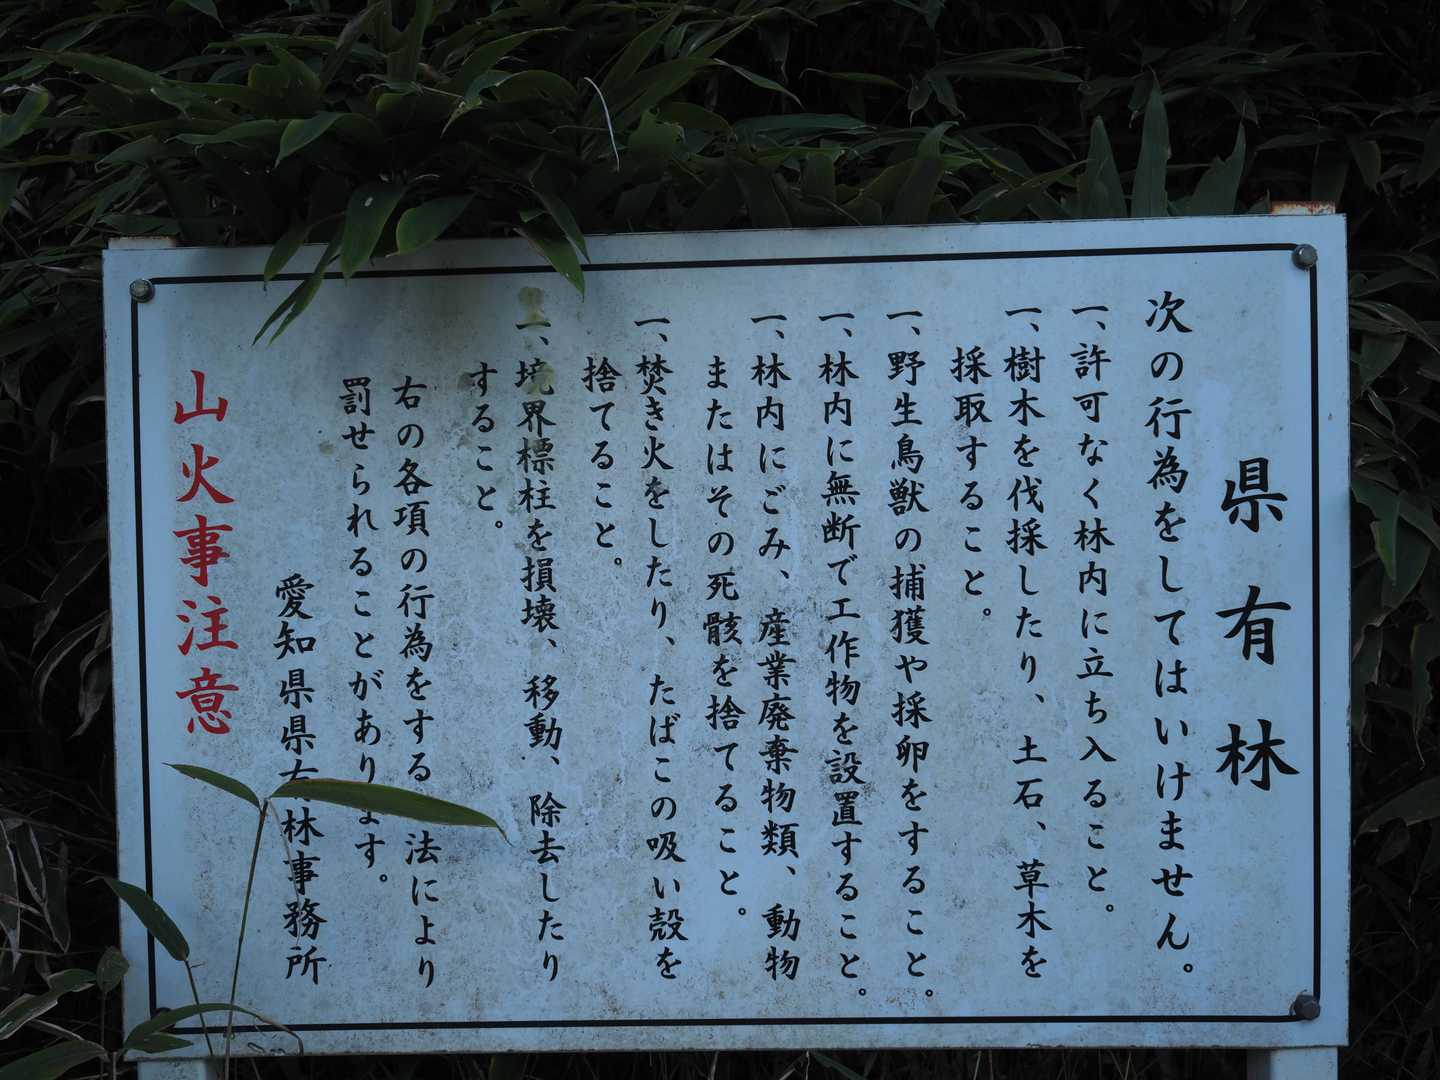 県有林
次の行為をしてはいけません。
一、許可なく林内に立ち入ること。
一、樹木を伐採したり、土石、草木を
採取すること。
一、野生鳥獣の捕獲や採卵をすること。
一、林内に無断で工作物を設置すること。
一、林内にごみ、産業廃棄物類、動物
またはその死骸を捨てること。
一、焚き火をしたり、たばこの吸い殻を
捨てること。
一、境界標柱を損壊、移動、除去したり
すること。
右の各項の行為をする 法により
罰せられることがあります。
愛知県県有林事務所
山火事注意